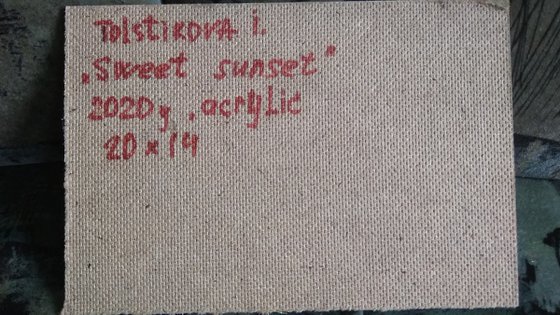 Tolstikova i.
„Sweet sunset"
2020y, acrylic
20 x 14